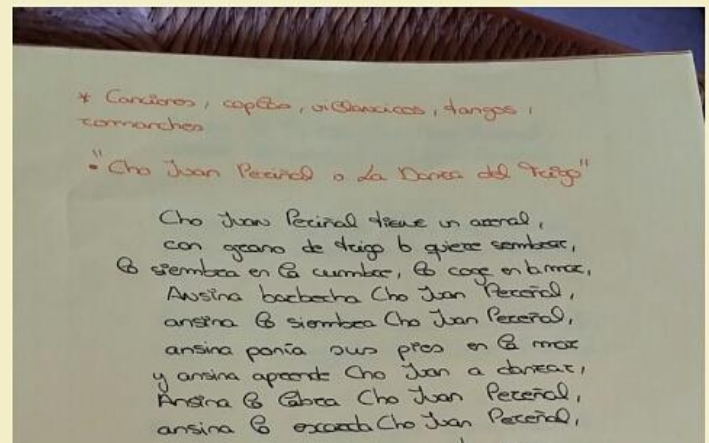 * Canciones, coplas, villancicos, tangos,
romanches
• "Cho Juan Periñal o La Danza del Trigo"
Cho Juan Periñal tiene un arenal,
con grano de trigo lo quiere sembrar,
lo siembra en la cumbre, lo coge en la mar,
Ansina barbecha Cho Juan Pereñal,
ansina lo siembra Cho Juan Pereñal,
ansina ponía sus pies en la mar
y ansina aprende Cho Juan a danzar,
Ansina lo labra Cho Juan Pereñal,
ansina lo Cho Juan Pereñal,